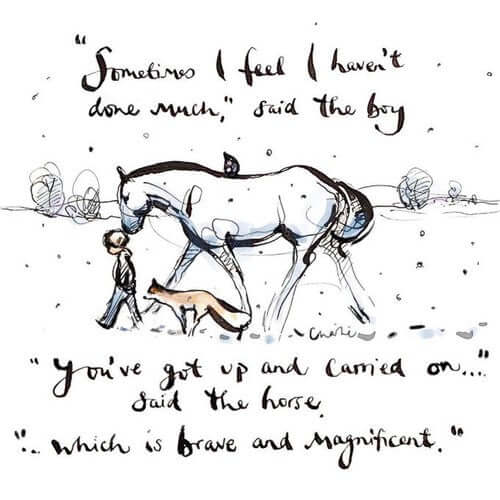 "Sometimes I feel I haven't
done much," said the boy
Charlie
"You've got up and carried on..."
said the horse.
".. which is brave and magnificent."